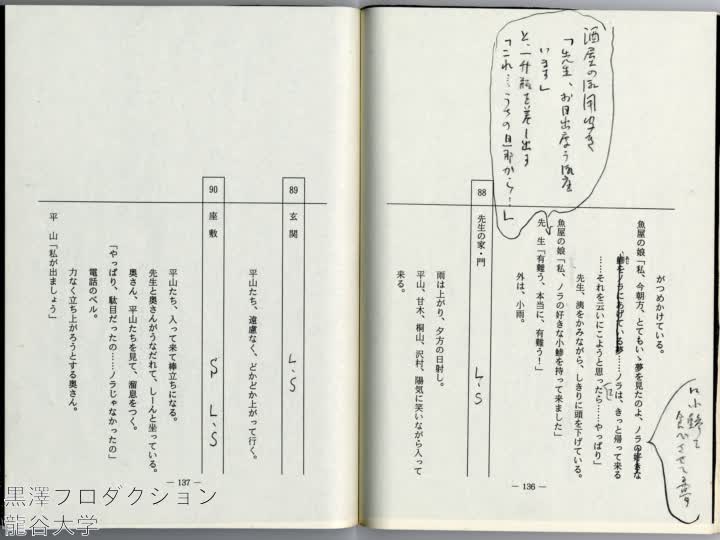 酒屋の御用聞き
「先生、お目出度う御座
います」
と、一升瓶を差し出す
「これ…うちの旦那から…」
がつめかけている。
魚屋の娘「私、今朝方、とてもいゝ夢を見たのよ、ノラの好きな
鯵をノラにあげている夢……ノラは、きっと帰って来る
……それを云いにこようと思ったら……やっぱり」
先生、洟をかみながら、しきりに頭を下げている。
魚屋の娘「私、ノラの好きな小鯵を持って来ました」
先 生「有難う、本当に、有難う!」
外は、小雨。
88 先生の家・門
L.S
雨は上がり、夕方の日射し。
平山、甘木、桐山、沢村、陽気に笑いながら入って
来る。
— 136 —
89 玄 関
L.S
平山たち、遠慮なく、どかどか上がって行く。
90 座 敷
L.S
平山たち、入って来て棒立ちになる。
先生と奥さんがうなだれて、しーんと坐っている。
奥さん、平山たちを見て、溜息をつく。
「やっぱり、駄目だったの……ノラじゃなかったの」
電話のベル。
力なく立ち上がろうとする奥さん。
平 山「私が出ましょう」
— 137 —
黒澤プロダクション
龍谷大学